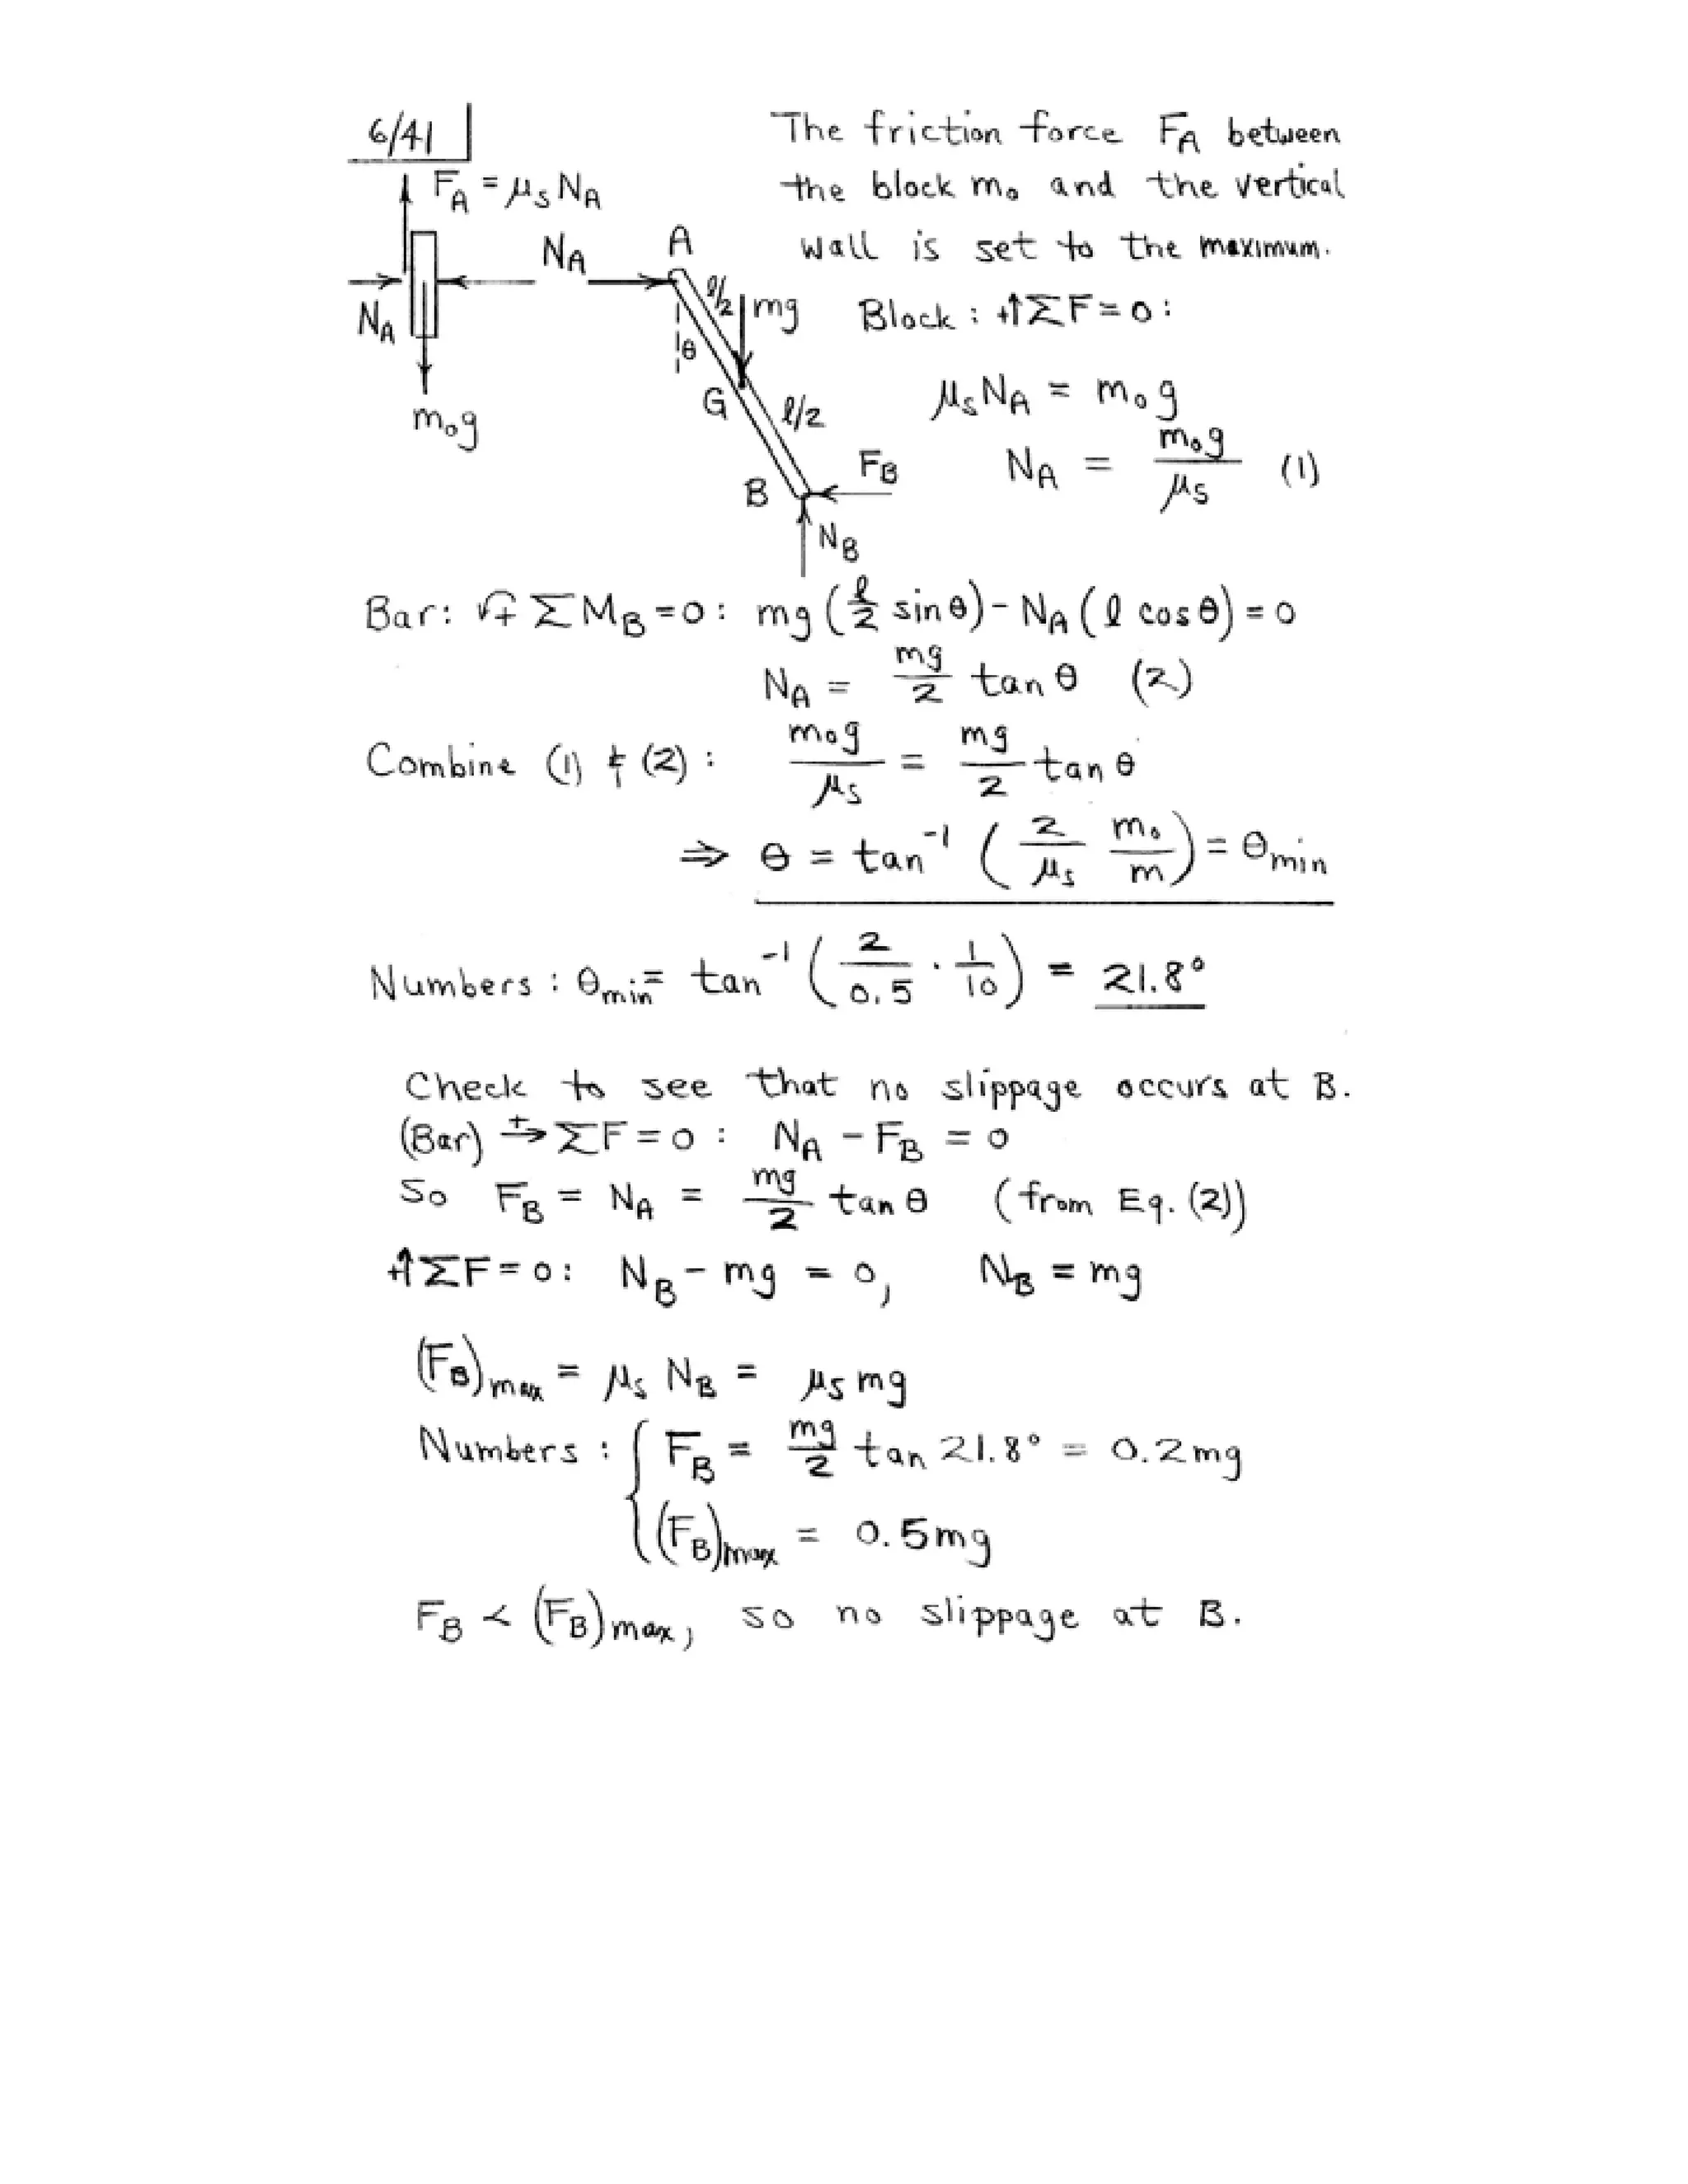 6/41
The friction force F_A between
the block m₀ and the vertical
wall is set to the maximum.
F_A = μ_s N_A
N_A
N_A
m₀g
A
l/2
mg
θ
G
l/2
B
F_B
N_B
Block : +↑ΣF = 0 :
μ_s N_A = m₀g
N_A = m₀g/μ_s (1)
Bar: ↶+ ΣM_B = 0 : mg (l/2 sin θ) - N_A (l cos θ) = 0
N_A = mg/2 tan θ (2)
Combine (1) & (2) : m₀g/μ_s = mg/2 tan θ
⇒ θ = tan⁻¹ (2/μ_s m₀/m) = θ_min
Numbers : θ_min = tan⁻¹ (2/0.5 · 1/10) = 21.8°
Check to see that no slippage occurs at B.
(Bar) +→ ΣF = 0 : N_A - F_B = 0
So F_B = N_A = mg/2 tan θ (from Eq. (2))
+↑ΣF = 0 : N_B - mg = 0, N_B = mg
(F_B)_max = μ_s N_B = μ_s mg
Numbers : { F_B = mg/2 tan 21.8° = 0.2mg
(F_B)_max = 0.5mg
F_B < (F_B)_max, so no slippage at B.